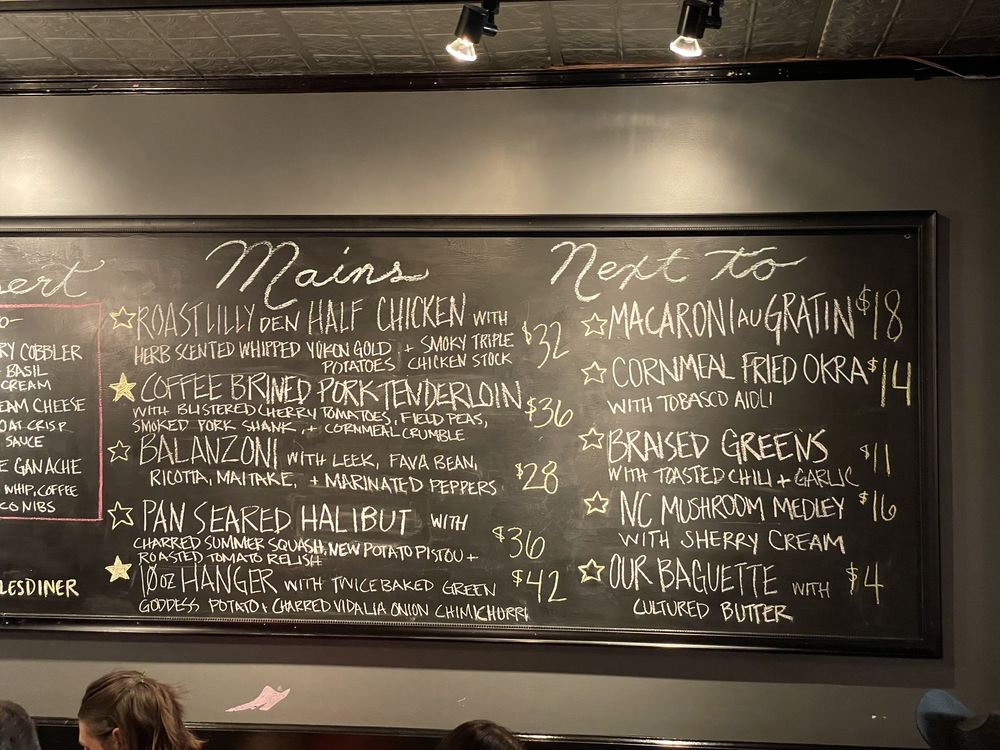 sert
RY COBBLER
BASIL
CREAM
EAM CHEESE
OAT CRISP
SAUCE
E GANACHE
WHIP, COFFEE
CO NIBS
LESDINER
Mains
ROAST LILLY DEN HALF CHICKEN WITH
HERB SCENTED WHIPPED YUKON GOLD + SMOKY TRIPLE
POTATOES CHICKEN STOCK
$32
COFFEE BRINED PORK TENDERLOIN
WITH BLISTERED CHERRY TOMATOES, FIELD PEAS,
SMOKED PORK SHANK, + CORNMEAL CRUMBLE
$36
BALANZONI WITH LEEK, FAVA BEAN,
RICOTTA, MAITAKE, + MARINATED PEPPERS
$28
PAN SEARED HALIBUT WITH
CHARRED SUMMER SQUASH, NEW POTATO PISTOU +
ROASTED TOMATO RELISH
$36
10oz HANGER WITH TWICE BAKED GREEN
GODDESS POTATO + CHARRED VIDALIA ONION CHIMICHURRI
$42
Next to
MACARONI AU GRATIN $18
CORNMEAL FRIED OKRA $14
WITH TOBASCO AIOLI
BRAISED GREENS
WITH TOASTED CHILI + GARLIC
$11
NC MUSHROOM MEDLEY $16
WITH SHERRY CREAM
OUR BAGUETTE WITH $4
CULTURED BUTTER